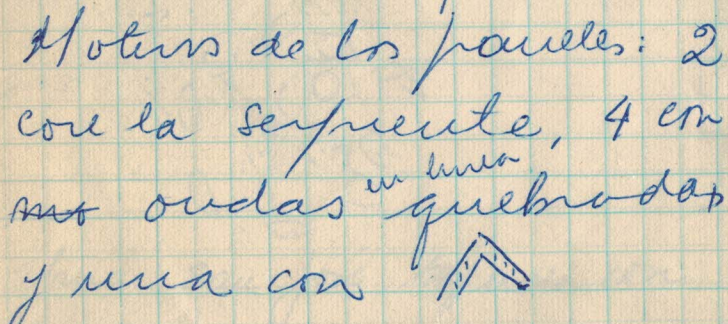 Motivos de los paneles: 2
con la serpiente, 4 con
ondas en linea quebradas
y una con